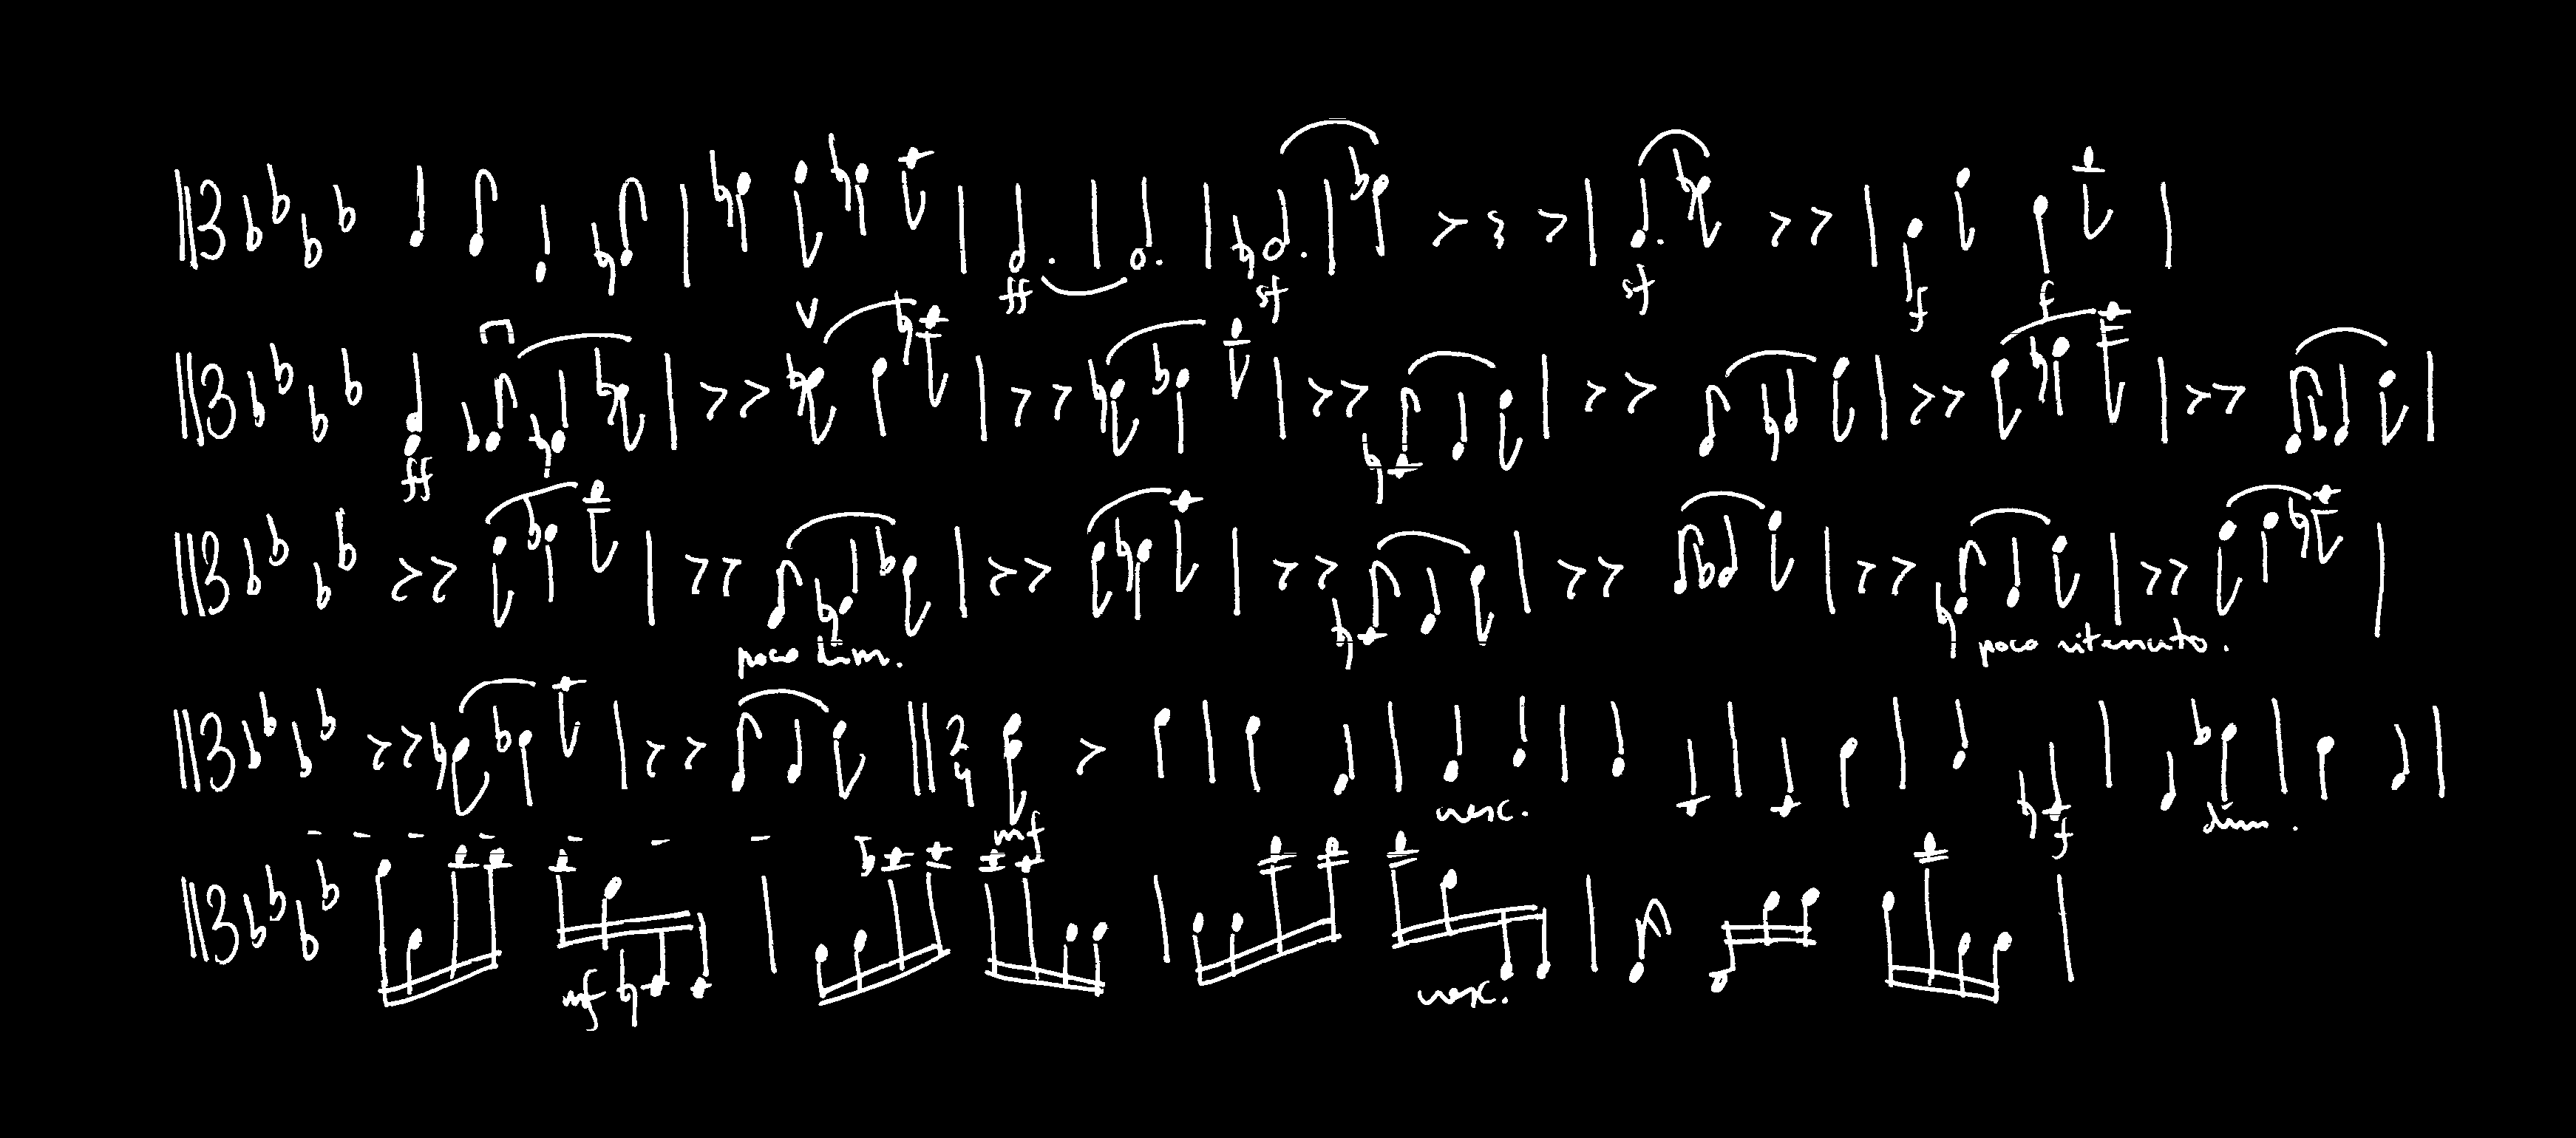 ff sf sf f f
ff
poco dim. poco ritenuto.
2 4 mf cresc. f dim.
mf cresc.